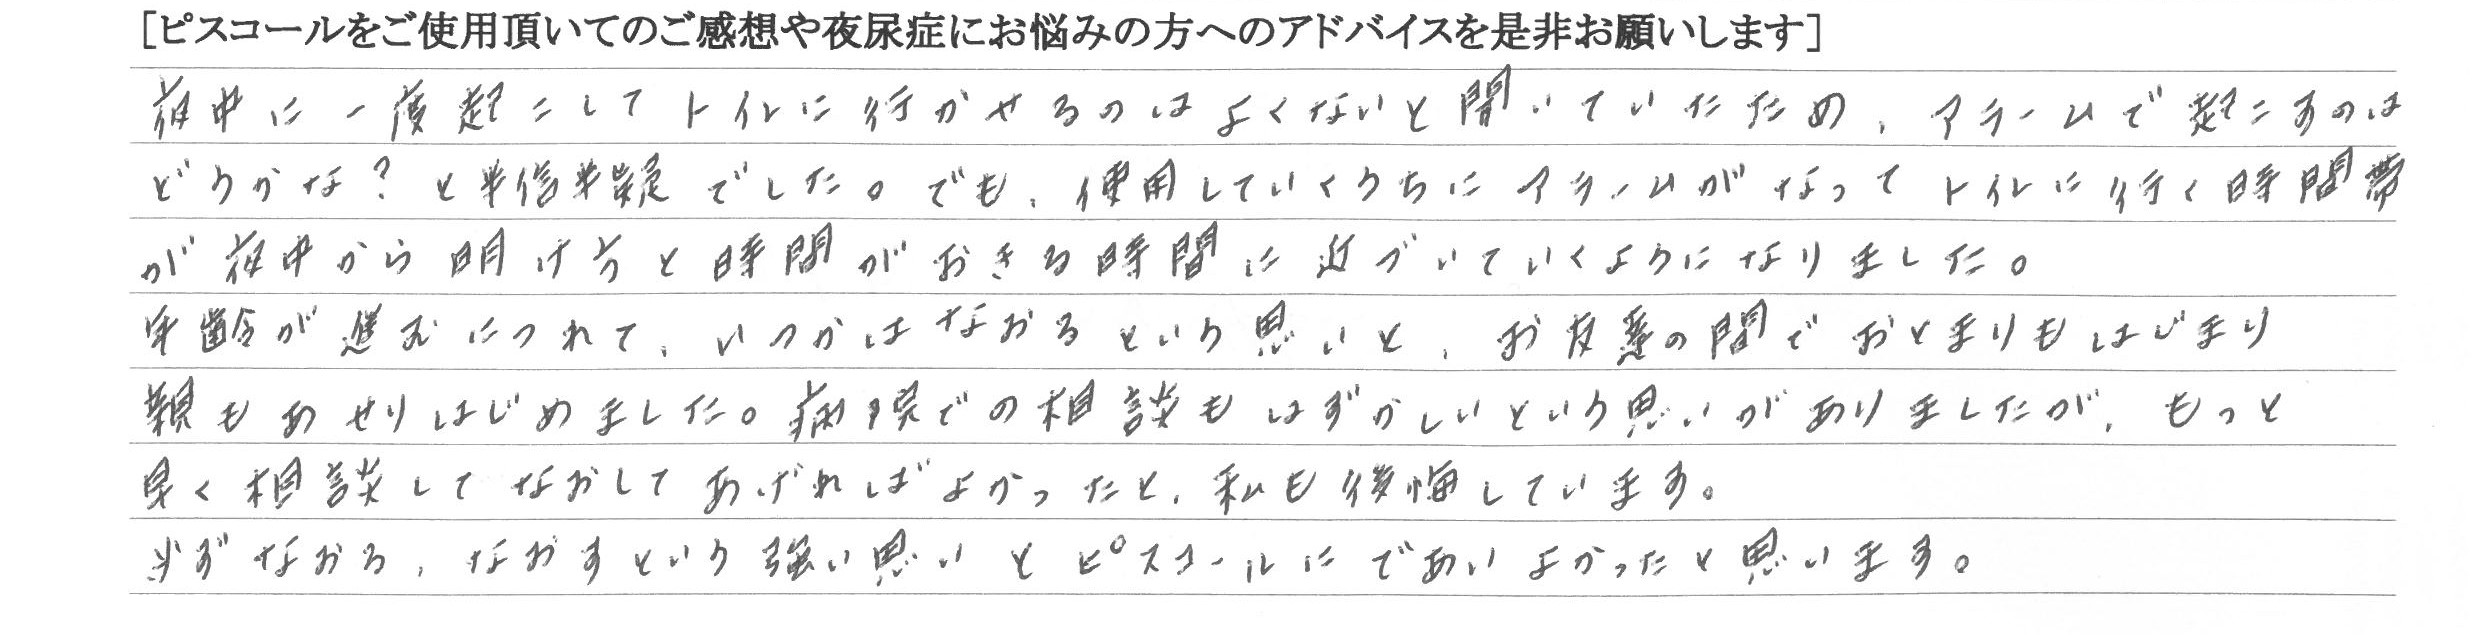 [ピスコールをご使用頂いてのご感想や夜尿症にお悩みの方へのアドバイスを是非お願いします]
夜中に一度起こしてトイレに行かせるのはよくないと聞いていたため、アラームで起こすのは
どうかな？と半信半疑でした。でも、使用していくうちにアラームがなってトイレに行く時間帯
が夜中から明け方と時間がおきる時間に近づいていくようになりました。
年齢が進むにつれて、いつかはなおるという思いと、お友達の間でおとまりもはじまり
親もあせりはじめました。病院での相談もはずかしいという思いがありましたが、もっと
早く相談してなおしてあげればよかったと、私も後悔しています。
必ずなおる、なおすという強い思いとピスコールにであいよかったと思います。